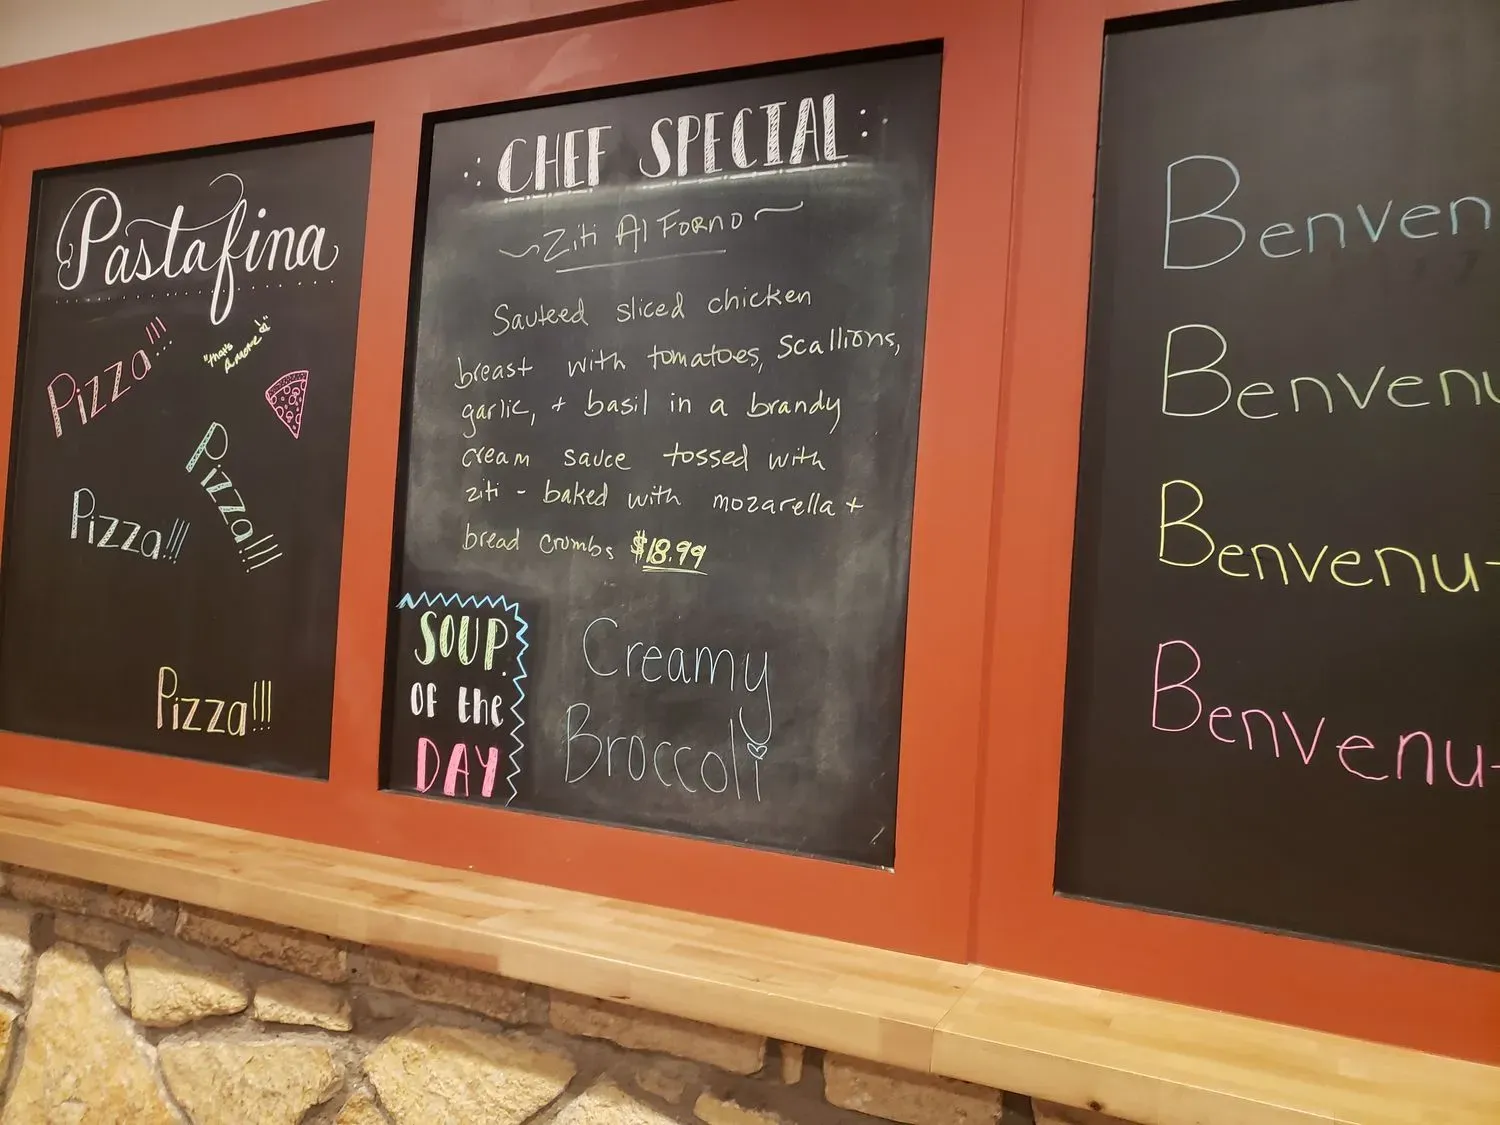 Pastafina
Pizza!!!
"that's
amore"
Pizza!!!
Pizza!!!
Pizza!!!
CHEF SPECIAL
~Ziti Al Forno~
Sauteed sliced chicken
breast with tomatoes, scallions,
garlic, + basil in a brandy
cream sauce tossed with
ziti - baked with mozarella +
bread crumbs $18.99
SOUP
OF the
DAY
Creamy
Broccoli
Benven
Benvenu
Benvenut
Benvenut